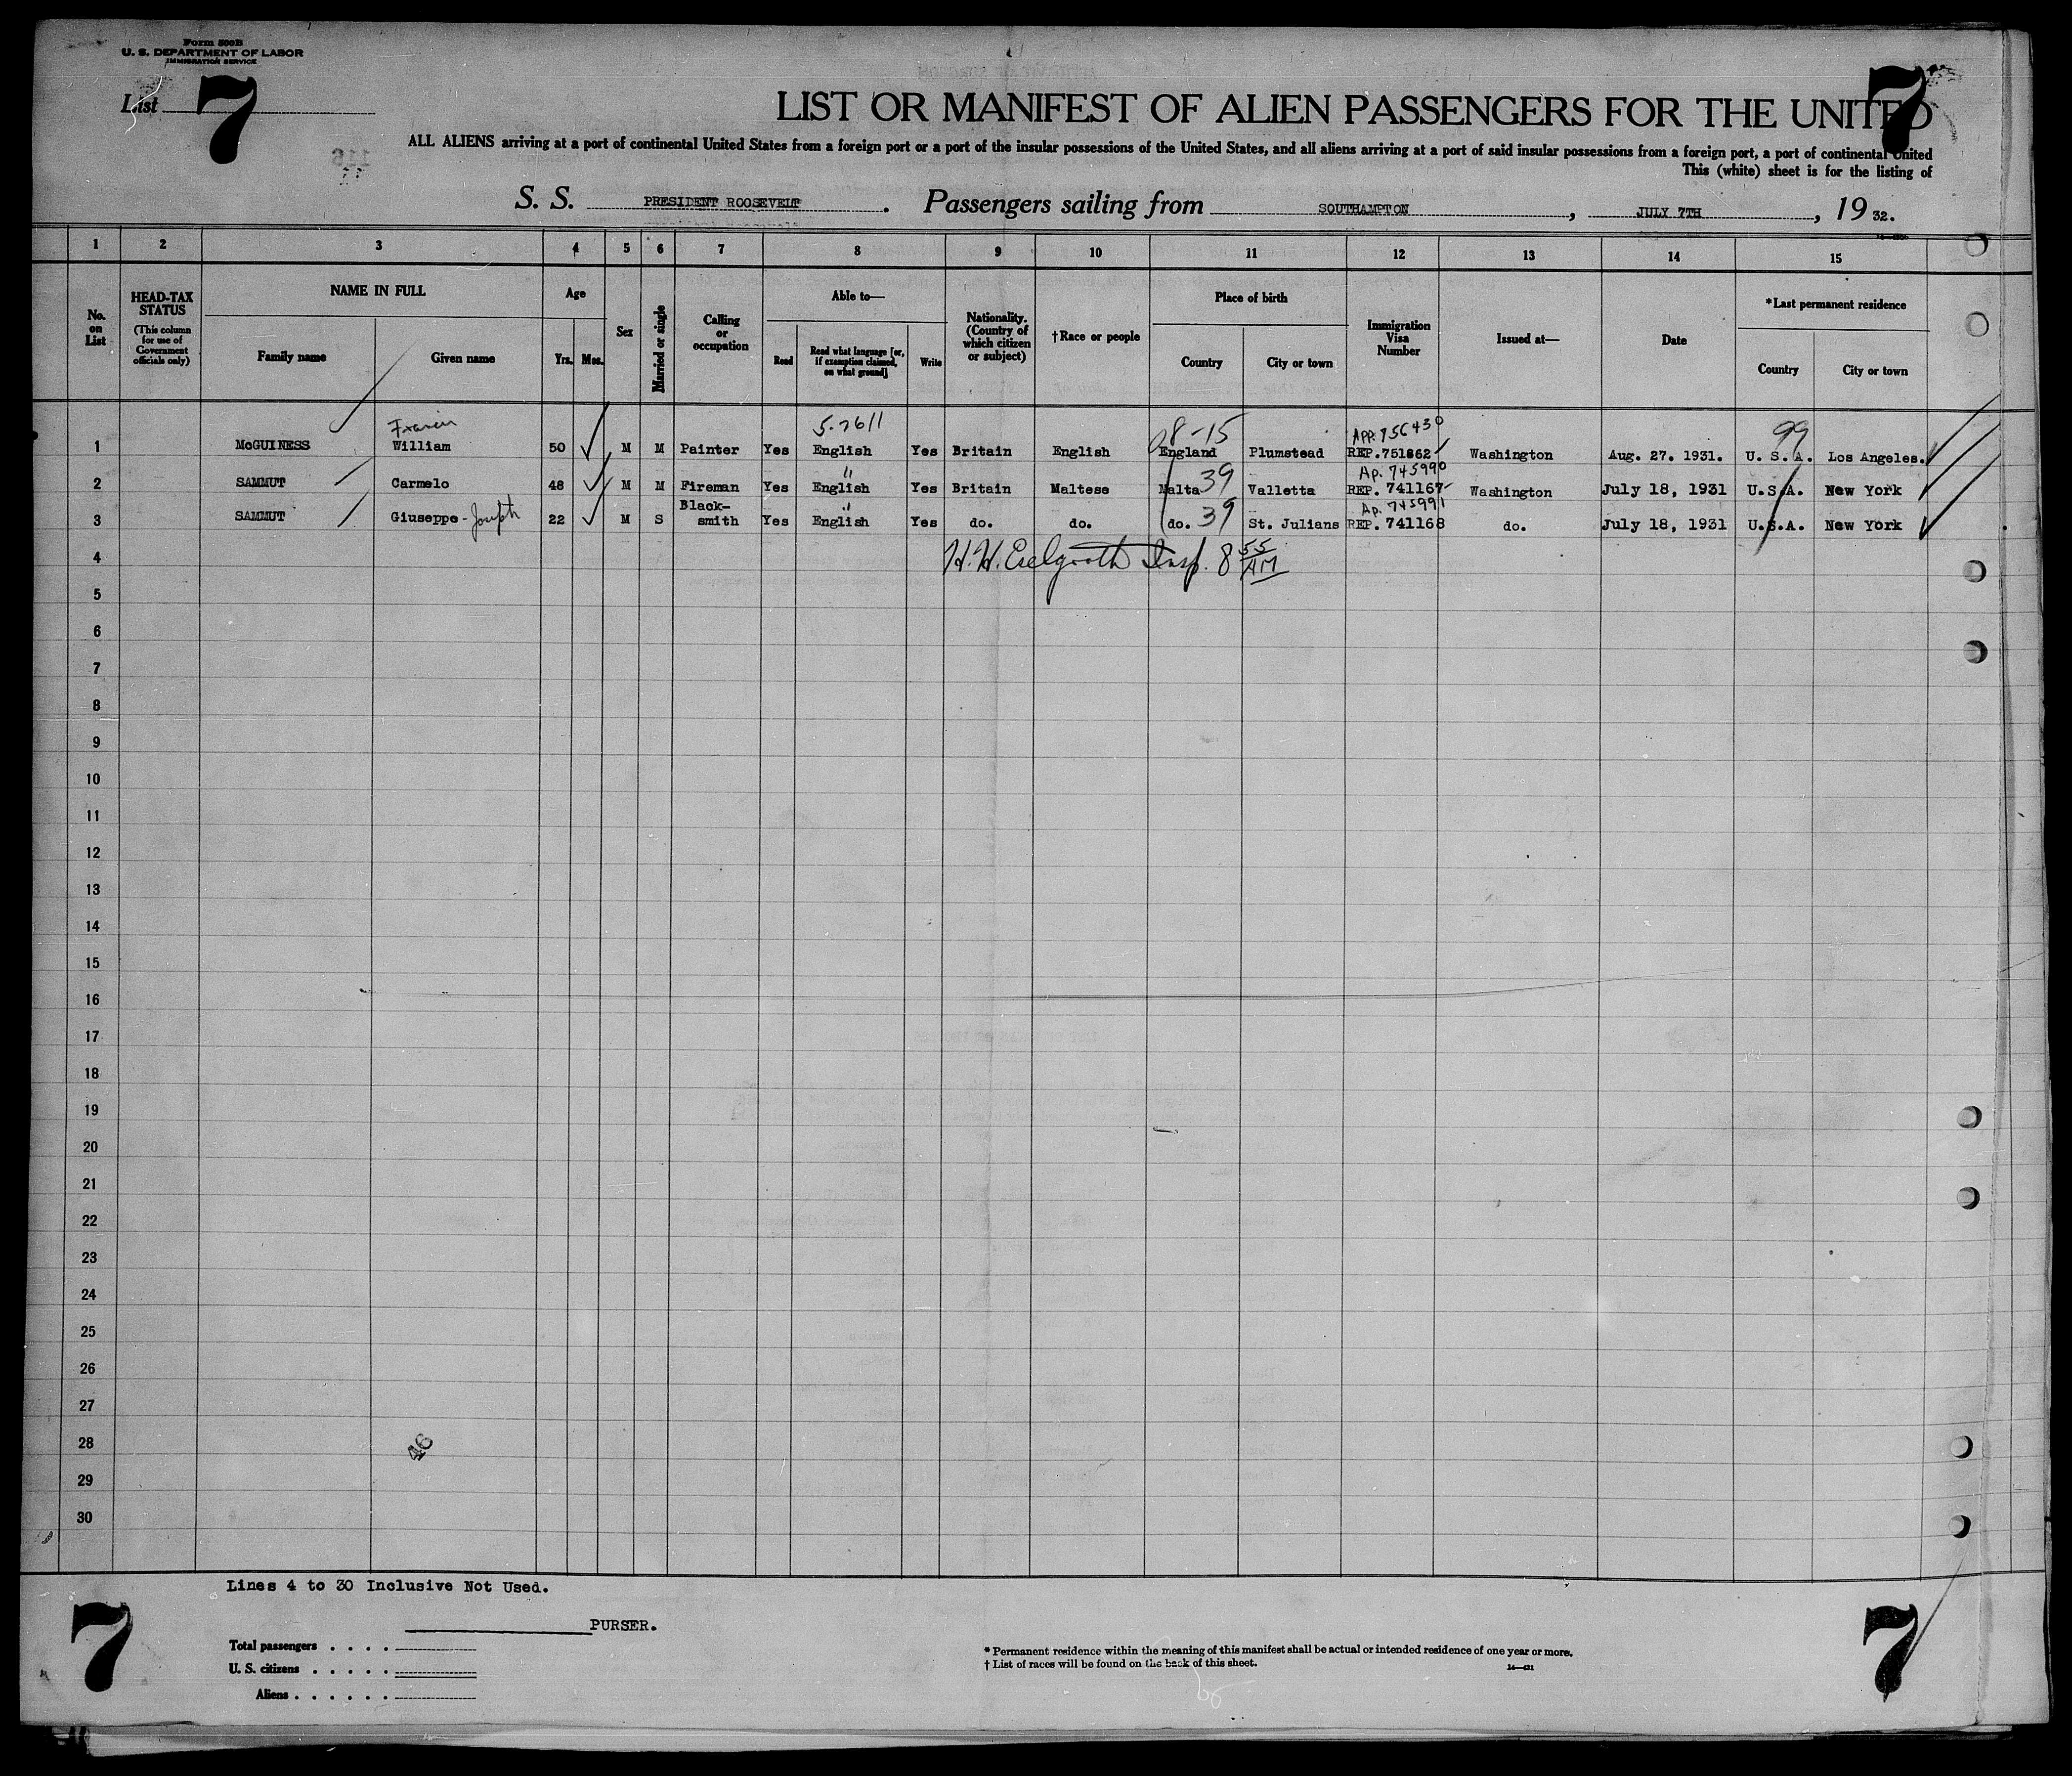 Form 500B
U. S. DEPARTMENT OF LABOR
IMMIGRATION SERVICE
List 7
7
LIST OR MANIFEST OF ALIEN PASSENGERS FOR THE UNITED
ALL ALIENS arriving at a port of continental United States from a foreign port or a port of the insular possessions of the United States, and all aliens arriving at a port of said insular possessions from a foreign port, a port of continental United
This (white) sheet is for the listing of
S. S. PRESIDENT ROOSEVELT. Passengers sailing from SOUTHAMPTON, JULY 7TH, 19 32.
1 2 3 4 5 6 7 8 9 10 11 12 13 14 15
No. on List
HEAD-TAX STATUS
(This column for use of Government officials only)
NAME IN FULL
Family name Given name
Age
Yrs. Mos.
Sex
Married or single
Calling or occupation
Able to—
Read Read what language [or, if exemption claimed, on what ground] Write
Nationality. (Country of which citizen or subject)
†Race or people
Place of birth
Country City or town
Immigration Visa Number
Issued at—
Date
*Last permanent residence
Country City or town
5-2611 8-15 APP. 756430 99
1 McGUINESS William 50 M M Painter Yes English Yes Britain English England Plumstead REP. 751862 Washington Aug. 27. 1931. U. S. A. Los Angeles.
" 39 Ap. 745990
2 SAMMUT Carmelo 48 M M Fireman Yes English Yes Britain Maltese Malta Valletta REP. 741167 Washington July 18, 1931 U.S.A. New York
" 39 Ap. 745991
3 SAMMUT Giuseppe - Joseph 22 M S Black-smith Yes English Yes do. do. do. St. Julians REP. 741168 do. July 18, 1931 U.S.A. New York
4 H. H. Insp. 8 55 AM
5
6
7
8
9
10
11
12
13
14
15
16
17
18
19
20
21
22
23
24
25
26
27
28 46
29
30
Lines 4 to 30 Inclusive Not Used.
7
7
PURSER.
Total passengers . . . .
U. S. citizens . . . . .
Aliens . . . . . .
* Permanent residence within the meaning of this manifest shall be actual or intended residence of one year or more.
† List of races will be found on the back of this sheet.